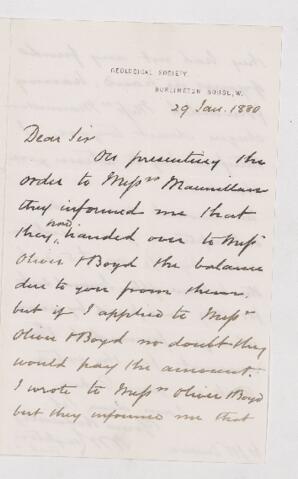 GEOLOGICAL SOCIETY,
BURLINGTON HOUSE, W.
29 Jan. 1880
Dear Sir
On presenting the
order to Messrs Macmillan
they informed me that
they had handed over to Messrs
Oliver & Boyd the balance
due to you from them.
but if I applied to Messrs
Oliver & Boyd no doubt they
would pay the amount.
I wrote to Messrs Oliver & Boyd
but they informed me that